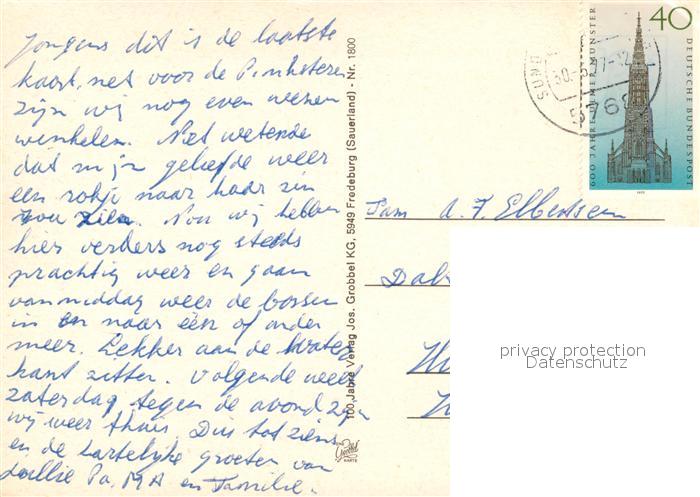 Jongens dit is de laatste
kaart, net voor de Pinksteren
zijn wij nog even wezen
winkelen. Niet wetende
dat mijn geliefde weer
een rokje naar haar zin
zou zien. Nou wij hebben
hier verders nog steeds
prachtig weer en gaan
vanmiddag weer de bossen
in en naar één of ander
meer. Lekker aan de water
kant zitten. Volgende week
zaterdag tegen de avond zijn
wij weer thuis. Dus tot ziens
en de hartelijke groeten van
Jullie Pa, MA en Familie.
100 Jahre Verlag Jos. Grobbel KG, 5949 Fredeburg (Sauerland) - Nr. 1800
Grobbel
KARTE
Fam A. J. Elbertsen
40
DEUTSCHE BUNDESPOST
600 JAHRE ULMER MÜNSTER
1977
SUND
30.
5768
privacy protection
Datenschutz